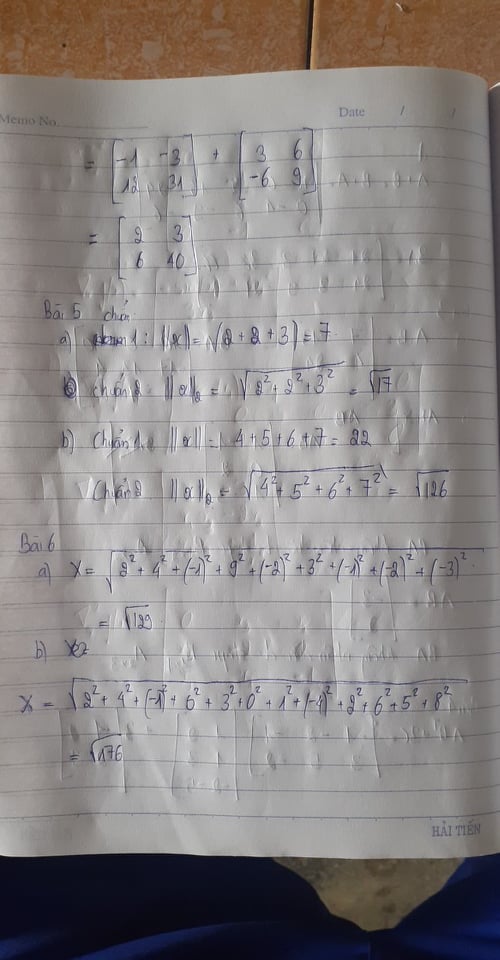 Memo No. Date / /
= [-1 -3; 12 31] + [3 6; -6 9]
= [2 3; 6 40]
Bài 5 chuẩn
a) 1: ||x|| = √(2 + 2 + 3) = 7
chuẩn 2 ||x||₂ = √2² + 2² + 3² = √17
b) Chuẩn 1: ||x|| = 4 + 5 + 6 + 7 = 22
Chuẩn 2 ||x||₂ = √4² + 5² + 6² + 7² = √126
Bài 6
a) X = √2² + 4² + (-1)² + 9² + (-2)² + 3² + (-1)² + (-2)² + (-3)²
= √129
b)
X = √2² + 4² + (-1)² + 6² + 3² + 0² + 1² + (-4)² + 2² + 6² + 5² + 8²
= √176
HẢI TIẾN